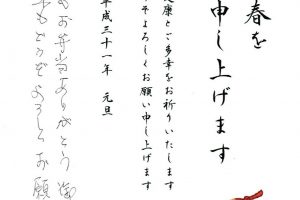 春を
申し上げます
康とご多幸をお祈りいたします
そよろしくお願い申し上げます
平成三十一年 元旦
もお弁当ありがとう
もどうぞよろしくお願